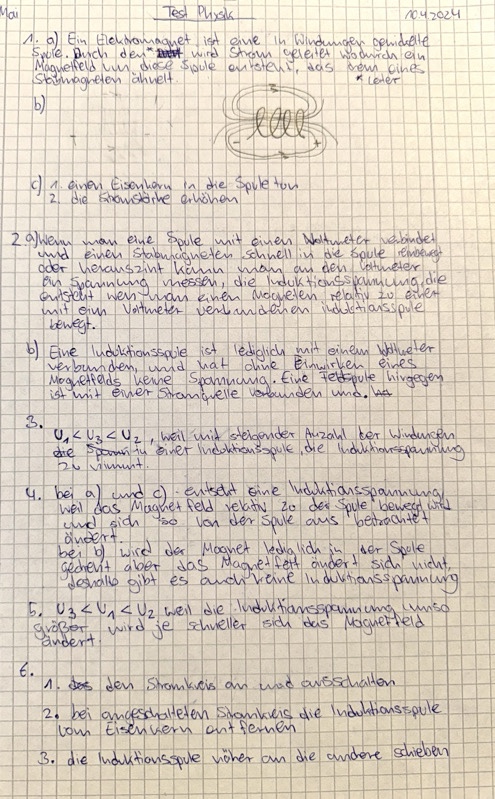 Mai Test Physik 10.4.2024
1. a) Ein Elektromagnet ist eine in Windungen gewickelte
Spule. Durch den * wird Strom geleitet wodurch ein
Magnetfeld um diese Spule entsteht, das dem eines
Stabmagneten ähnelt. * Leiter
b)
- +
c) 1. einen Eisenkern in die Spule tun
2. die Stromstärke erhöhen
2. a) Wenn man eine Spule mit einen Voltmeter verbindet
und einen Stabmagneten schnell in die Spule reinbewegt
oder herauszint kann man an den Voltmeter
ein Spannung messen, die Induktionsspannung, die
entsteht wen man einen Magneten relativ zu einer
mit ein Voltmeter verbundenen Induktionsspule
bewegt.
b) Eine Induktionsspule ist lediglich mit einem Voltmeter
verbunden, und hat ohne Einwirken eines
Magnetfelds keine Spannung. Eine Feldspule hingegen
ist mit einer Stromquelle verbunden und.
3.
U1 < U3 < U2, weil mit steigender Anzahl der Windungen
in einer Induktionsspule, die Induktionsspannung
zu nimmt.
4. bei a) und c) entseht eine Induktionsspannung
weil das Magnetfeld relativ zu der Spule bewegt wird
und sich so von der Spule aus betrachtet
ändert.
bei b) wird der Magnet lediglich in der Spule
gedreht aber das Magnetfelt ändert sich nicht,
deshalb gibt es auch keine Induktionsspannung
5. U3 < U1 < U2 weil die Induktionsspannung umso
größer wird je schneller sich das Magnetfeld
ändert.
6.
1. den Stromkreis an und ausschalten
2. bei angeschalteten Stromkreis die Induktionsspule
vom Eisenkern entfernen
3. die Induktionsspule näher an die andere schieben